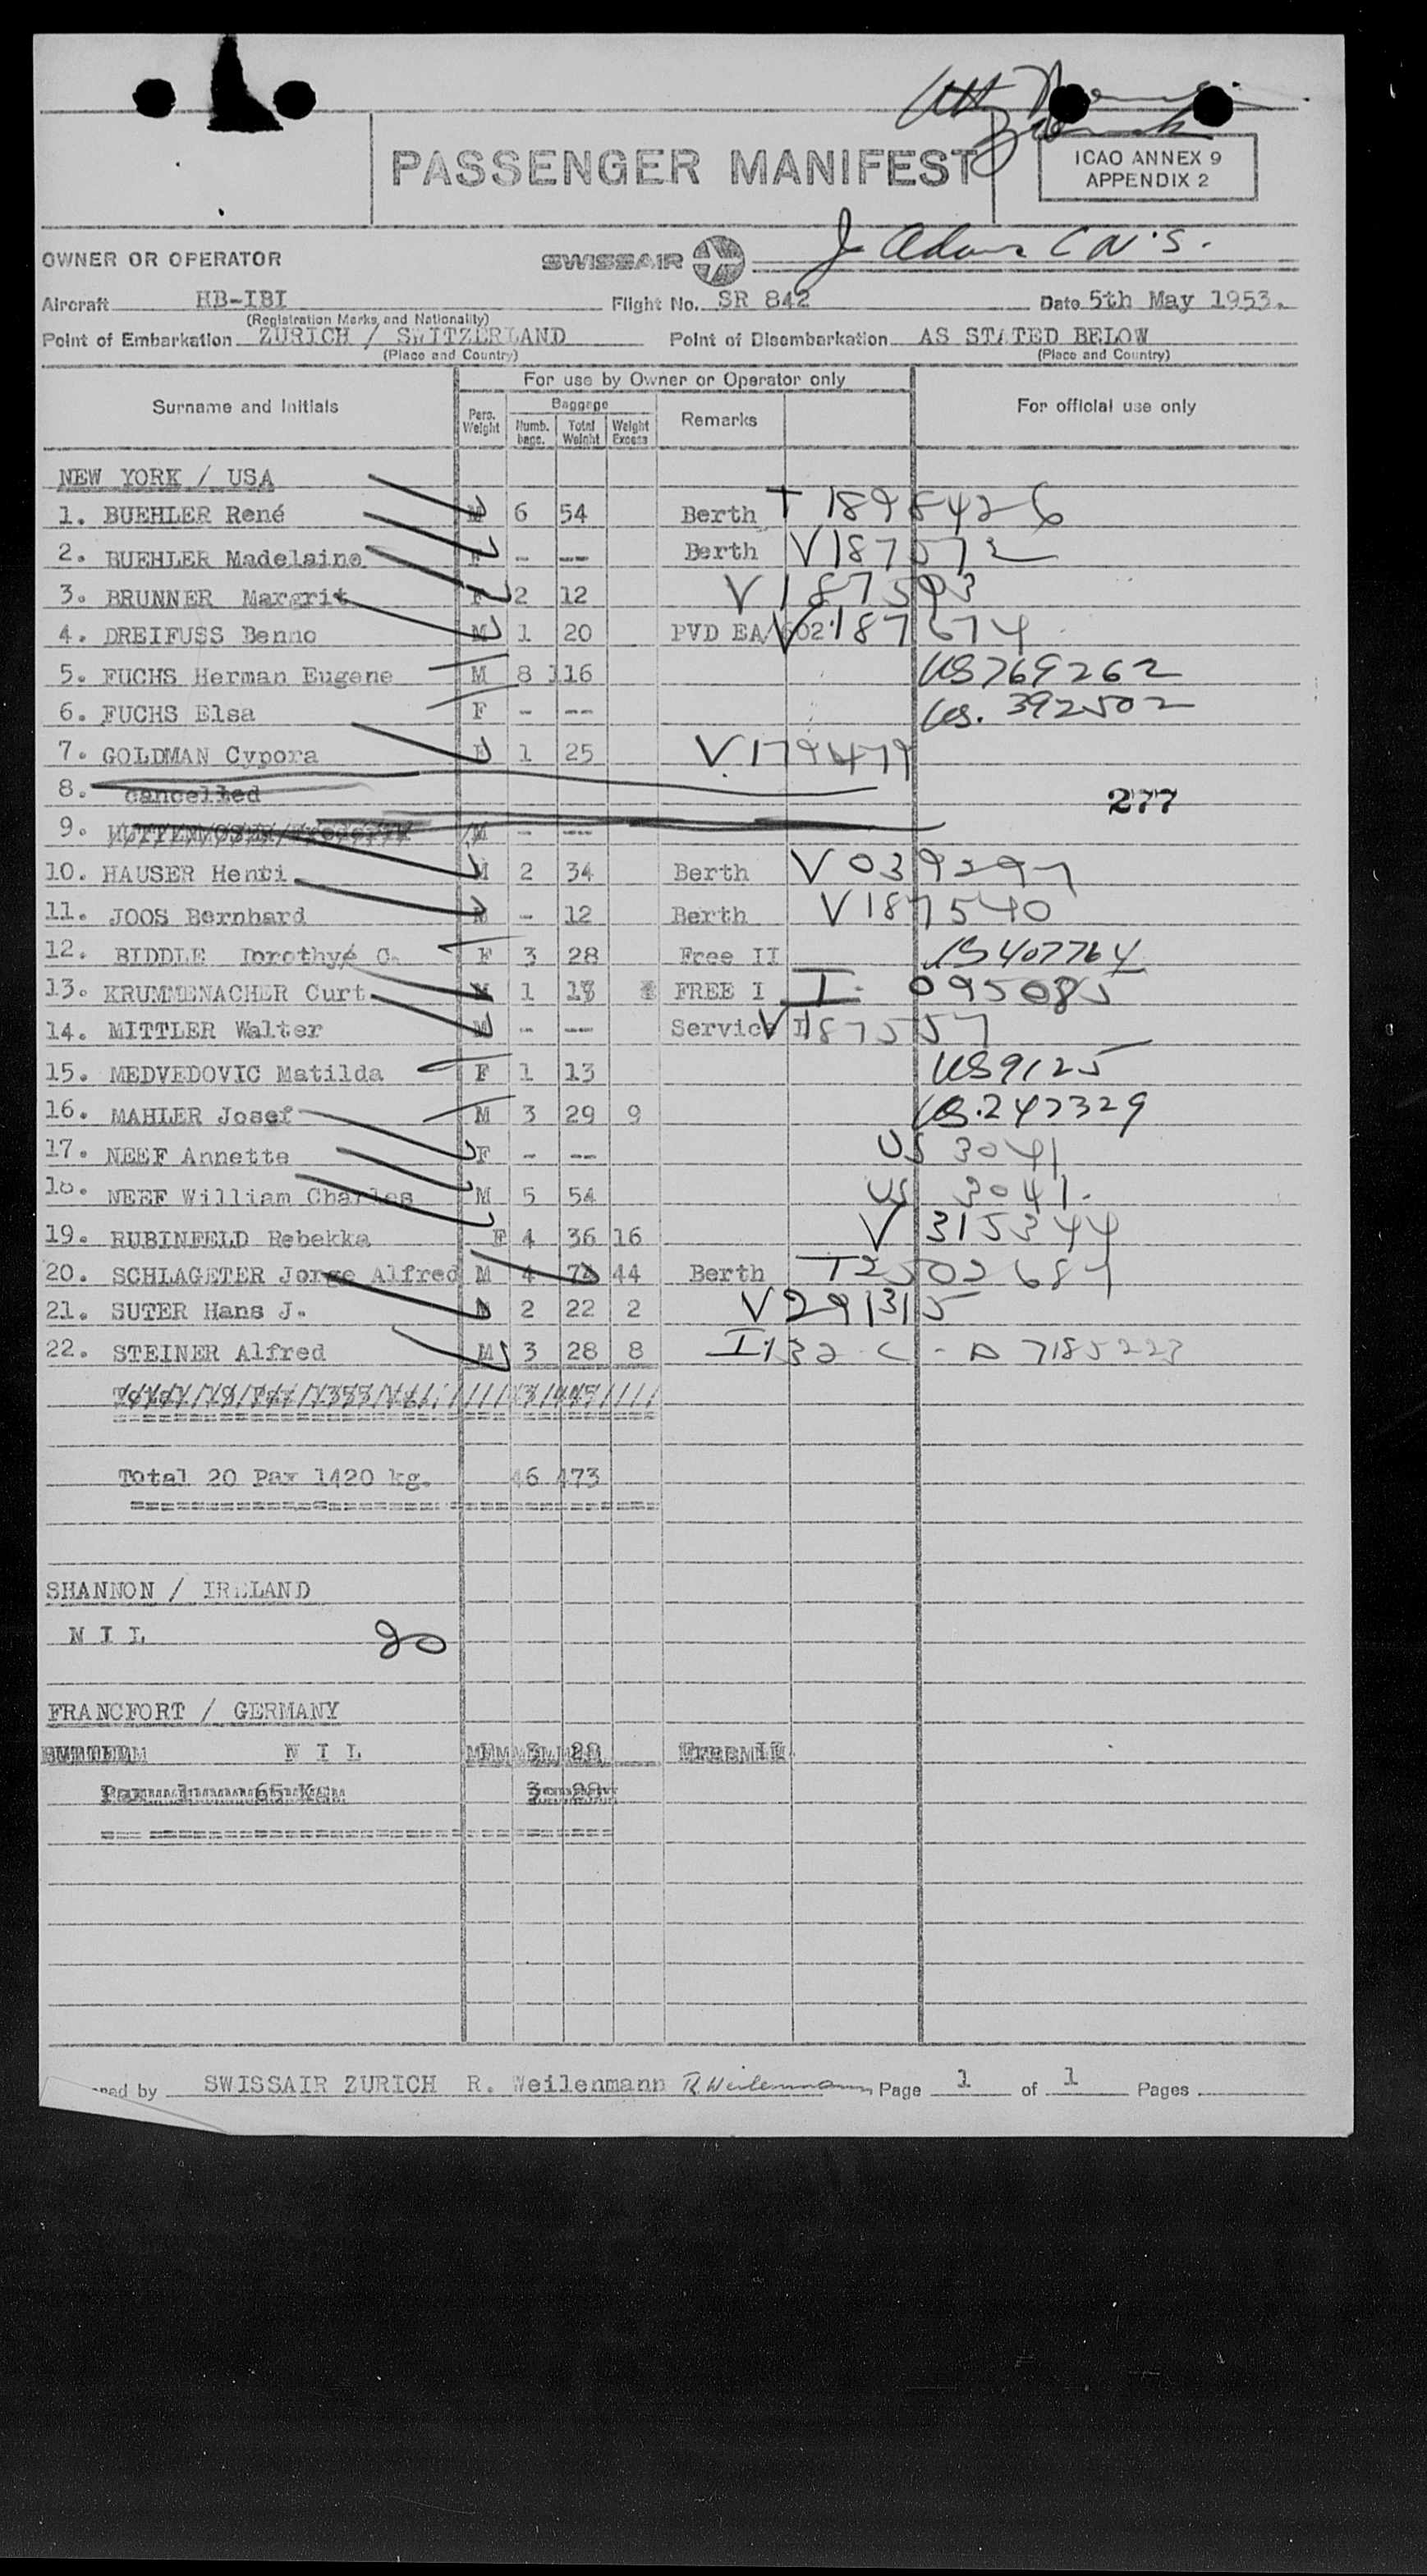 PASSENGER MANIFEST
ICAO ANNEX 9
APPENDIX 2
OWNER OR OPERATOR SWISSAIR
Aircraft HB-IBI Flight No. SR 842 Date 5th May 1953.
(Registration Marks and Nationality)
Point of Embarkation ZURICH / SWITZERLAND Point of Disembarkation AS STATED BELOW
(Place and Country) (Place and Country)
For use by Owner or Operator only
Surname and Initials Pers. Weight Baggage Numb. bags. Total Weight Weight Excess Remarks For official use only
NEW YORK / USA
1. BUEHLER René M 6 54 Berth T 1898426
2. BUEHLER Madelaine F - -- Berth V187572
3. BRUNNER Margrit F 2 12 V187593
4. DREIFUSS Benno M 1 20 PVD EA/602 V187674
5. FUCHS Herman Eugene M 8 116 US769262
6. FUCHS Elsa F - -- US. 392502
7. GOLDMAN Cypora F 1 25 V.179479
8. cancelled
277
9. M - --
10. HAUSER Henri M 2 34 Berth V 0392997
11. JOOS Bernhard M - 12 Berth V187540
12. BIDDLE Dorothyé C. F 3 28 Free II US407764
13. KRUMMENACHER Curt M 1 FREE I I 095085
14. MITTLER Walter M - -- Service II V187557
15. MEDVEDOVIC Matilda F 1 13 US9125
16. MAHLER Josef M 3 29 9 US.247329
17. NEEF Annette F - -- US 3041
18. NEEF William Charles M 5 54 US 3041.
19. RUBINFELD Rebekka F 4 36 16 V 315344
20. SCHLAGETER Jorge Alfred M 4 74 44 Berth T2502687
21. SUTER Hans J. M 2 22 2 V291315
22. STEINER Alfred M 3 28 8 I 132 C - A 7185223
Total 20 Pax 1420 kg. 46 473
SHANNON / IRELAND
N I L 20
FRANCFORT / GERMANY
N I L
SWISSAIR ZURICH R. Weilenmann R. Weilenmann Page 1 of 1 Pages